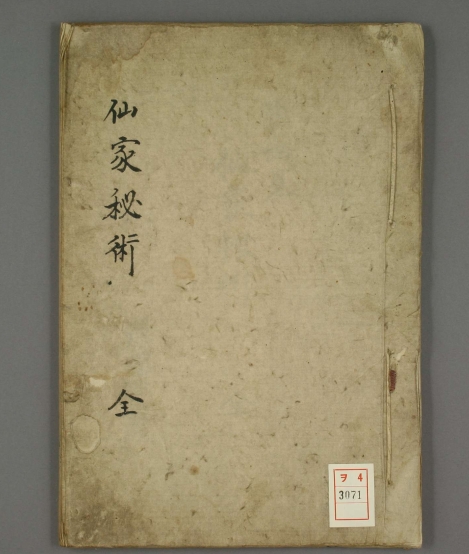 仙家秘術
全
ヲ 4
3071